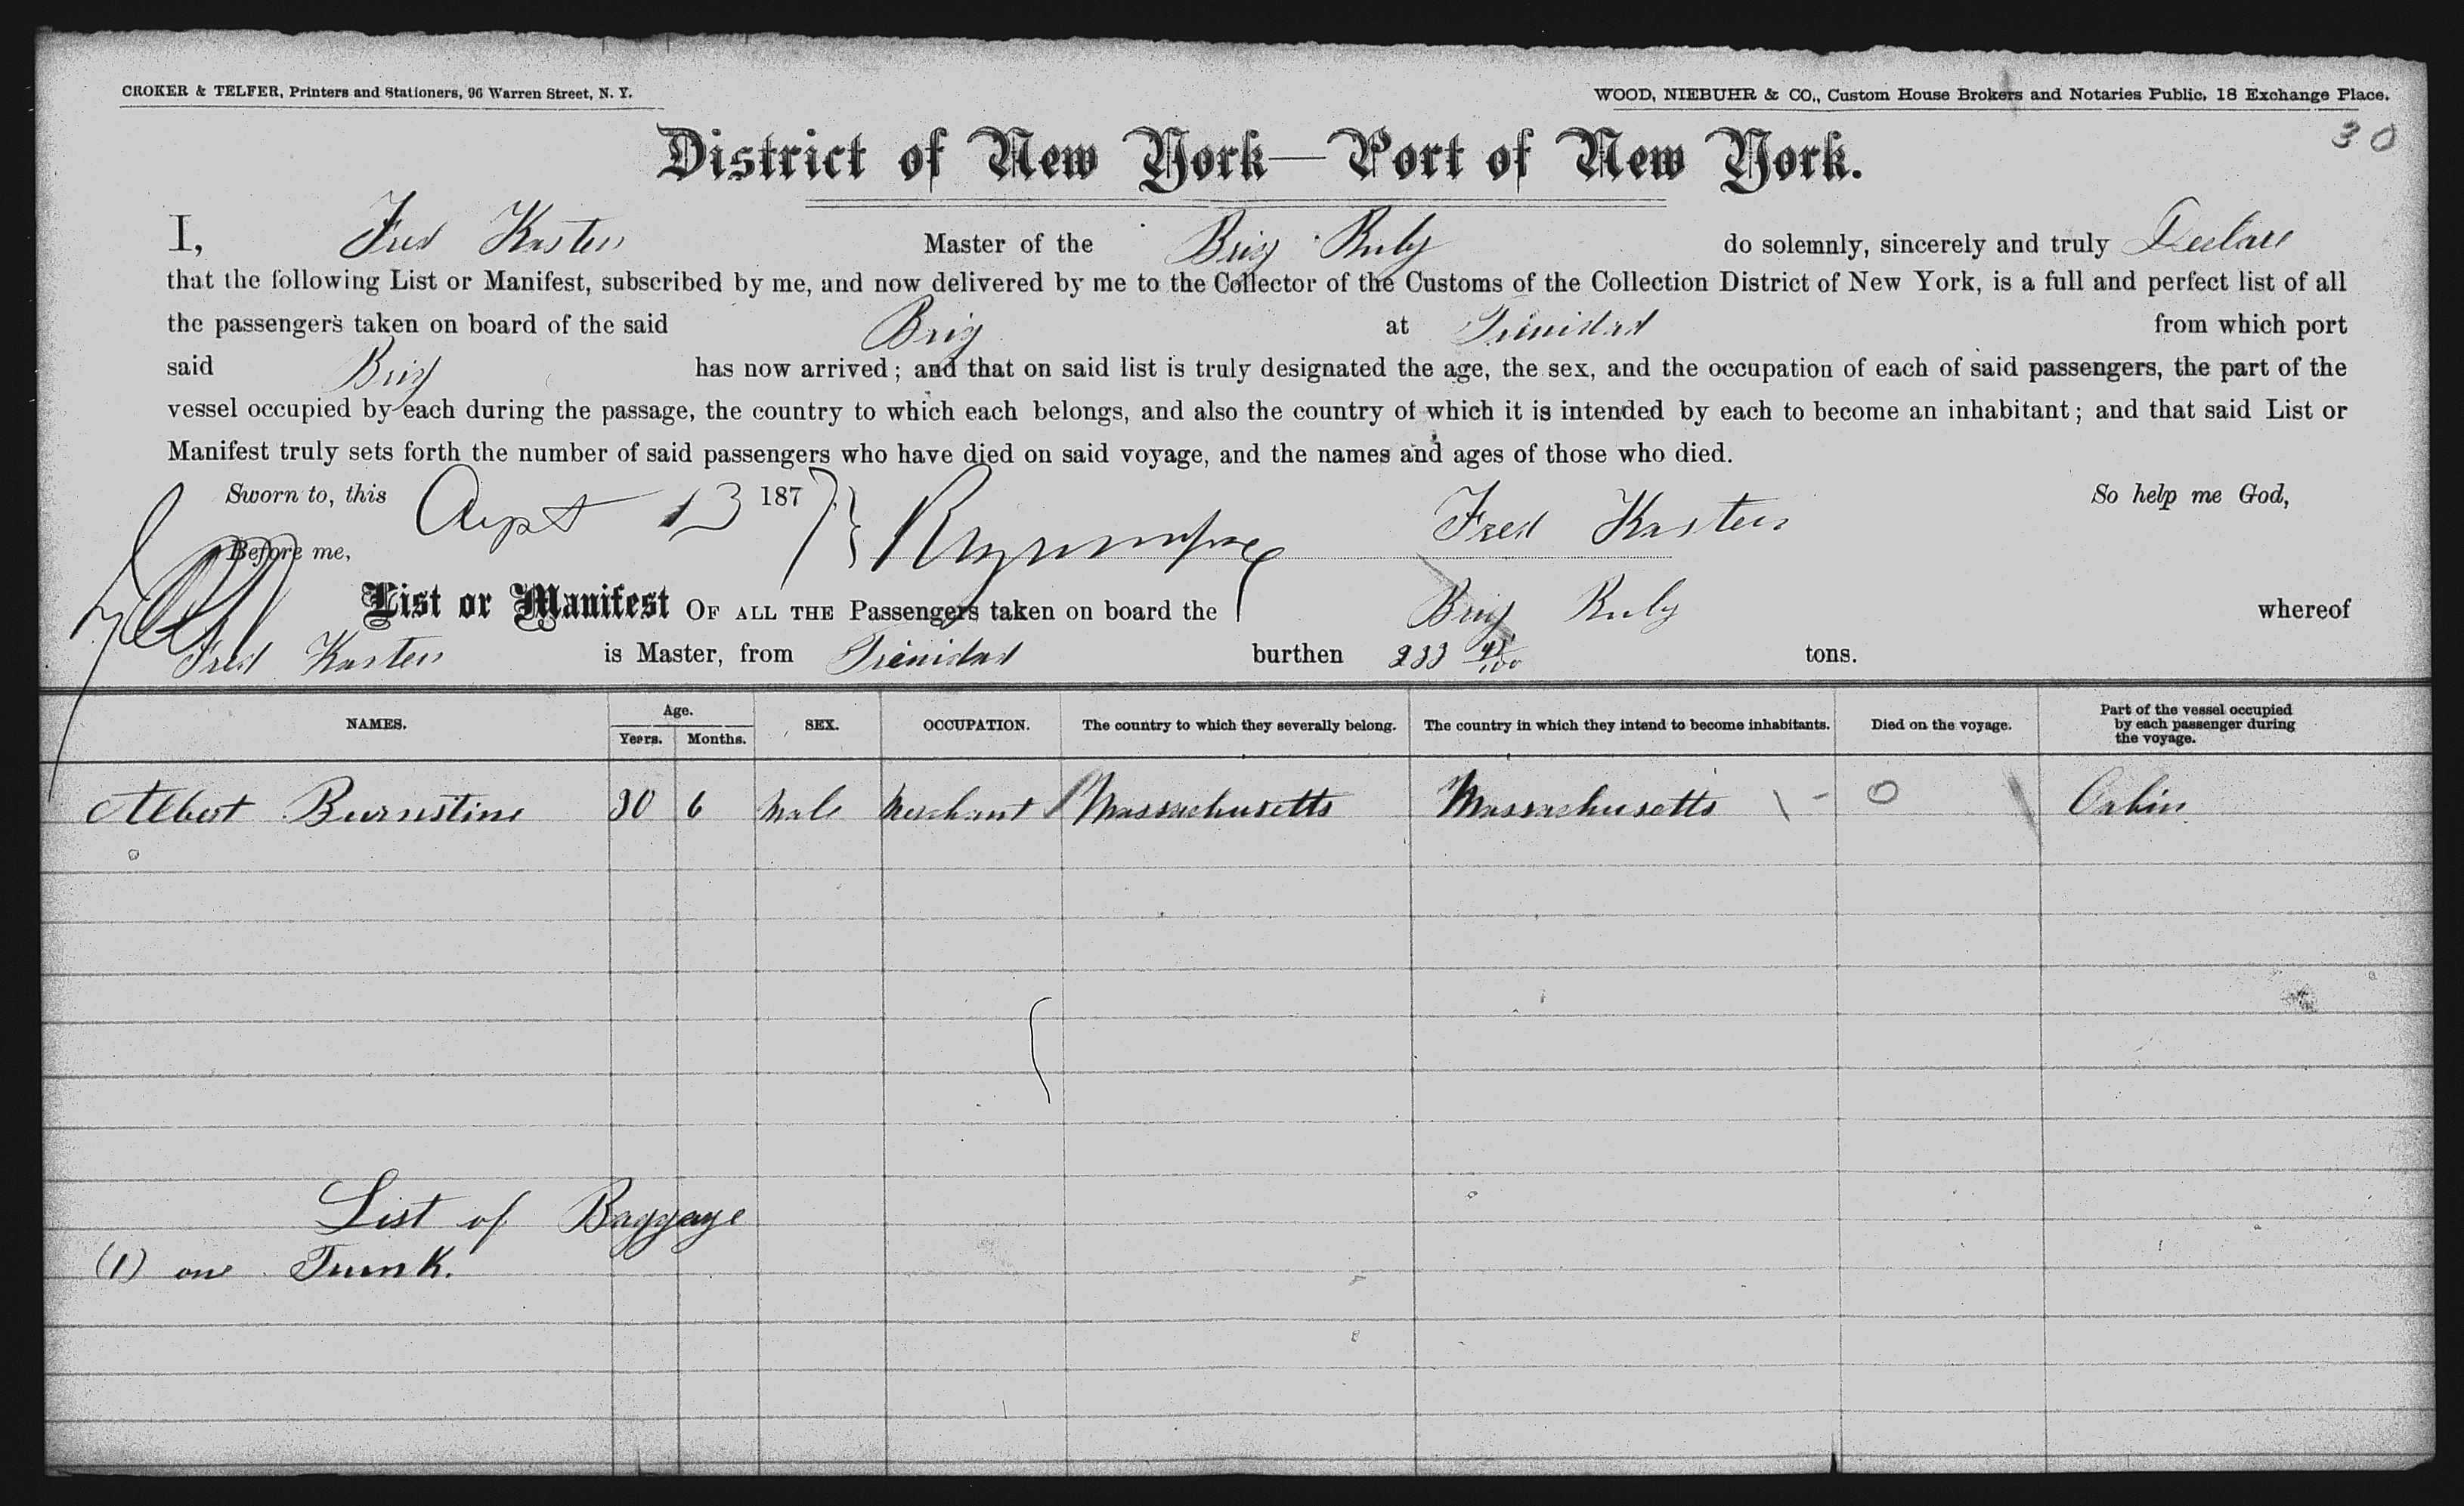 CROKER & TELFER, Printers and Stationers, 96 Warren Street, N. Y.
WOOD, NIEBUHR & CO., Custom House Brokers and Notaries Public, 18 Exchange Place.
30
District of New York—Port of New York.
I, Fred Kasten Master of the Brig Ruby do solemnly, sincerely and truly Declare
that the following List or Manifest, subscribed by me, and now delivered by me to the Collector of the Customs of the Collection District of New York, is a full and perfect list of all
the passengers taken on board of the said Brig at Trinidad from which port
said Brig has now arrived; and that on said list is truly designated the age, the sex, and the occupation of each of said passengers, the part of the
vessel occupied by each during the passage, the country to which each belongs, and also the country of which it is intended by each to become an inhabitant; and that said List or
Manifest truly sets forth the number of said passengers who have died on said voyage, and the names and ages of those who died.
Sworn to, this 13 1877 So help me God,
Before me, Fred Kasten
List or Manifest OF ALL THE Passengers taken on board the Brig Ruby whereof
Fred Kasten is Master, from Trinidad burthen 233 45/100 tons.
NAMES. Age. Years. Months. SEX. OCCUPATION. The country to which they severally belong. The country in which they intend to become inhabitants. Died on the voyage. Part of the vessel occupied by each passenger during the voyage.
Albert Burnstine 30 6 Male Merchant Massachusetts Massachusetts 0 Cabin
List of Baggage
(1) one Trunk.